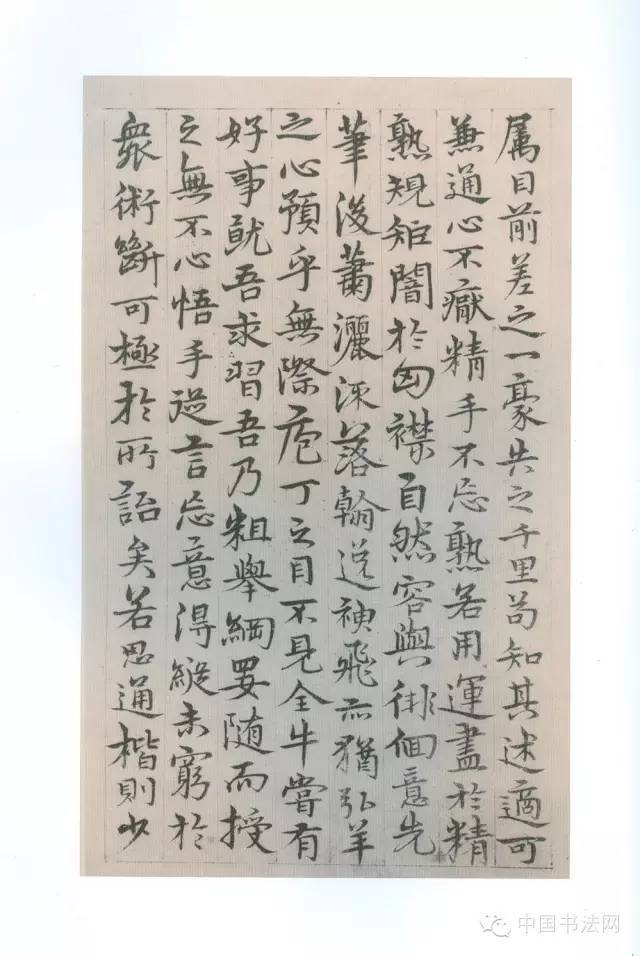 属目前差之一豪失之千里苟知其述適可
兼通心不厭精手不忘熟若用運盡於精
熟規矩闇於匈襟自然容與徘佪意先
筆後蕭灑流落翰逸神飛亦猶弘羊
之心預乎無際庖丁之目不見全牛嘗有
好事就吾求習吾乃粗舉綱要随而授
之無不心悟手從言忘意得縱未窮於
衆術斷可極於所詣矣若思通楷則少
中国书法网